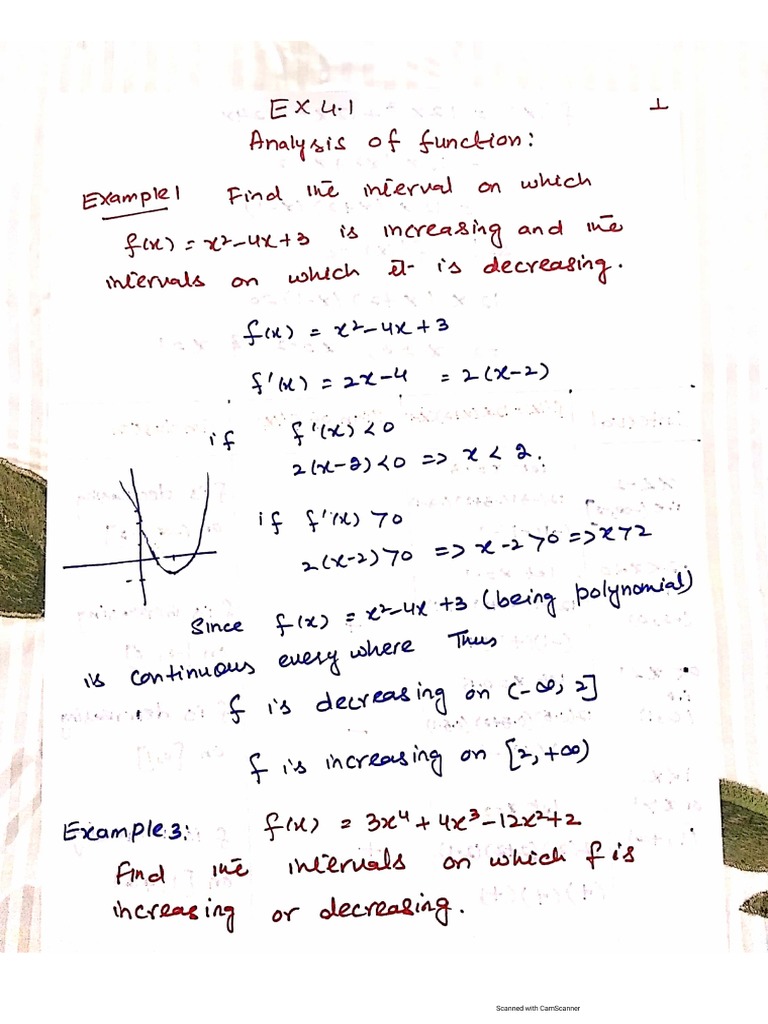 EX 4.1
1
Analysis of function:
Example 1 Find the interval on which
f(x) = x²-4x+3 is increasing and the
intervals on which it is decreasing.
f(x) = x²-4x+3
f'(x) = 2x-4 = 2(x-2)
if f'(x) <0
2(x-2) <0 => x < 2.
if f'(x) >0
2(x-2) >0 => x-2 >0 => x>2
Since f(x) = x²-4x+3 (being polynomial)
is continuous every where Thus
f is decreasing on (-∞, 2]
f is increasing on [2, +∞)
Example 3: f(x) = 3x⁴+4x³-12x²+2
Find the intervals on which f is
increasing or decreasing.
Scanned with CamScanner